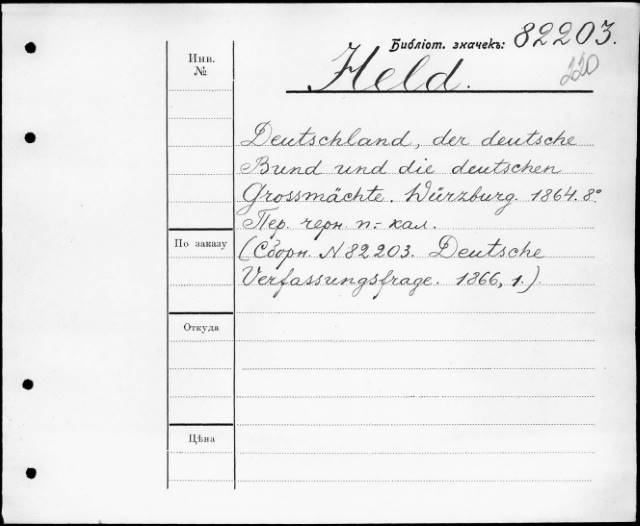 Библіот. значекъ: 82203.
220
Held.
Инв.
№
Deutschland, der deutsche
Bund und die deutschen
Grossmächte. Würzburg. 1864. 8°
Пер. черн. п.-кал.
(Сборн. N 82203. Deutsche
Verfassungsfrage. 1866, 1.)
По заказу
Откуда
Цѣна